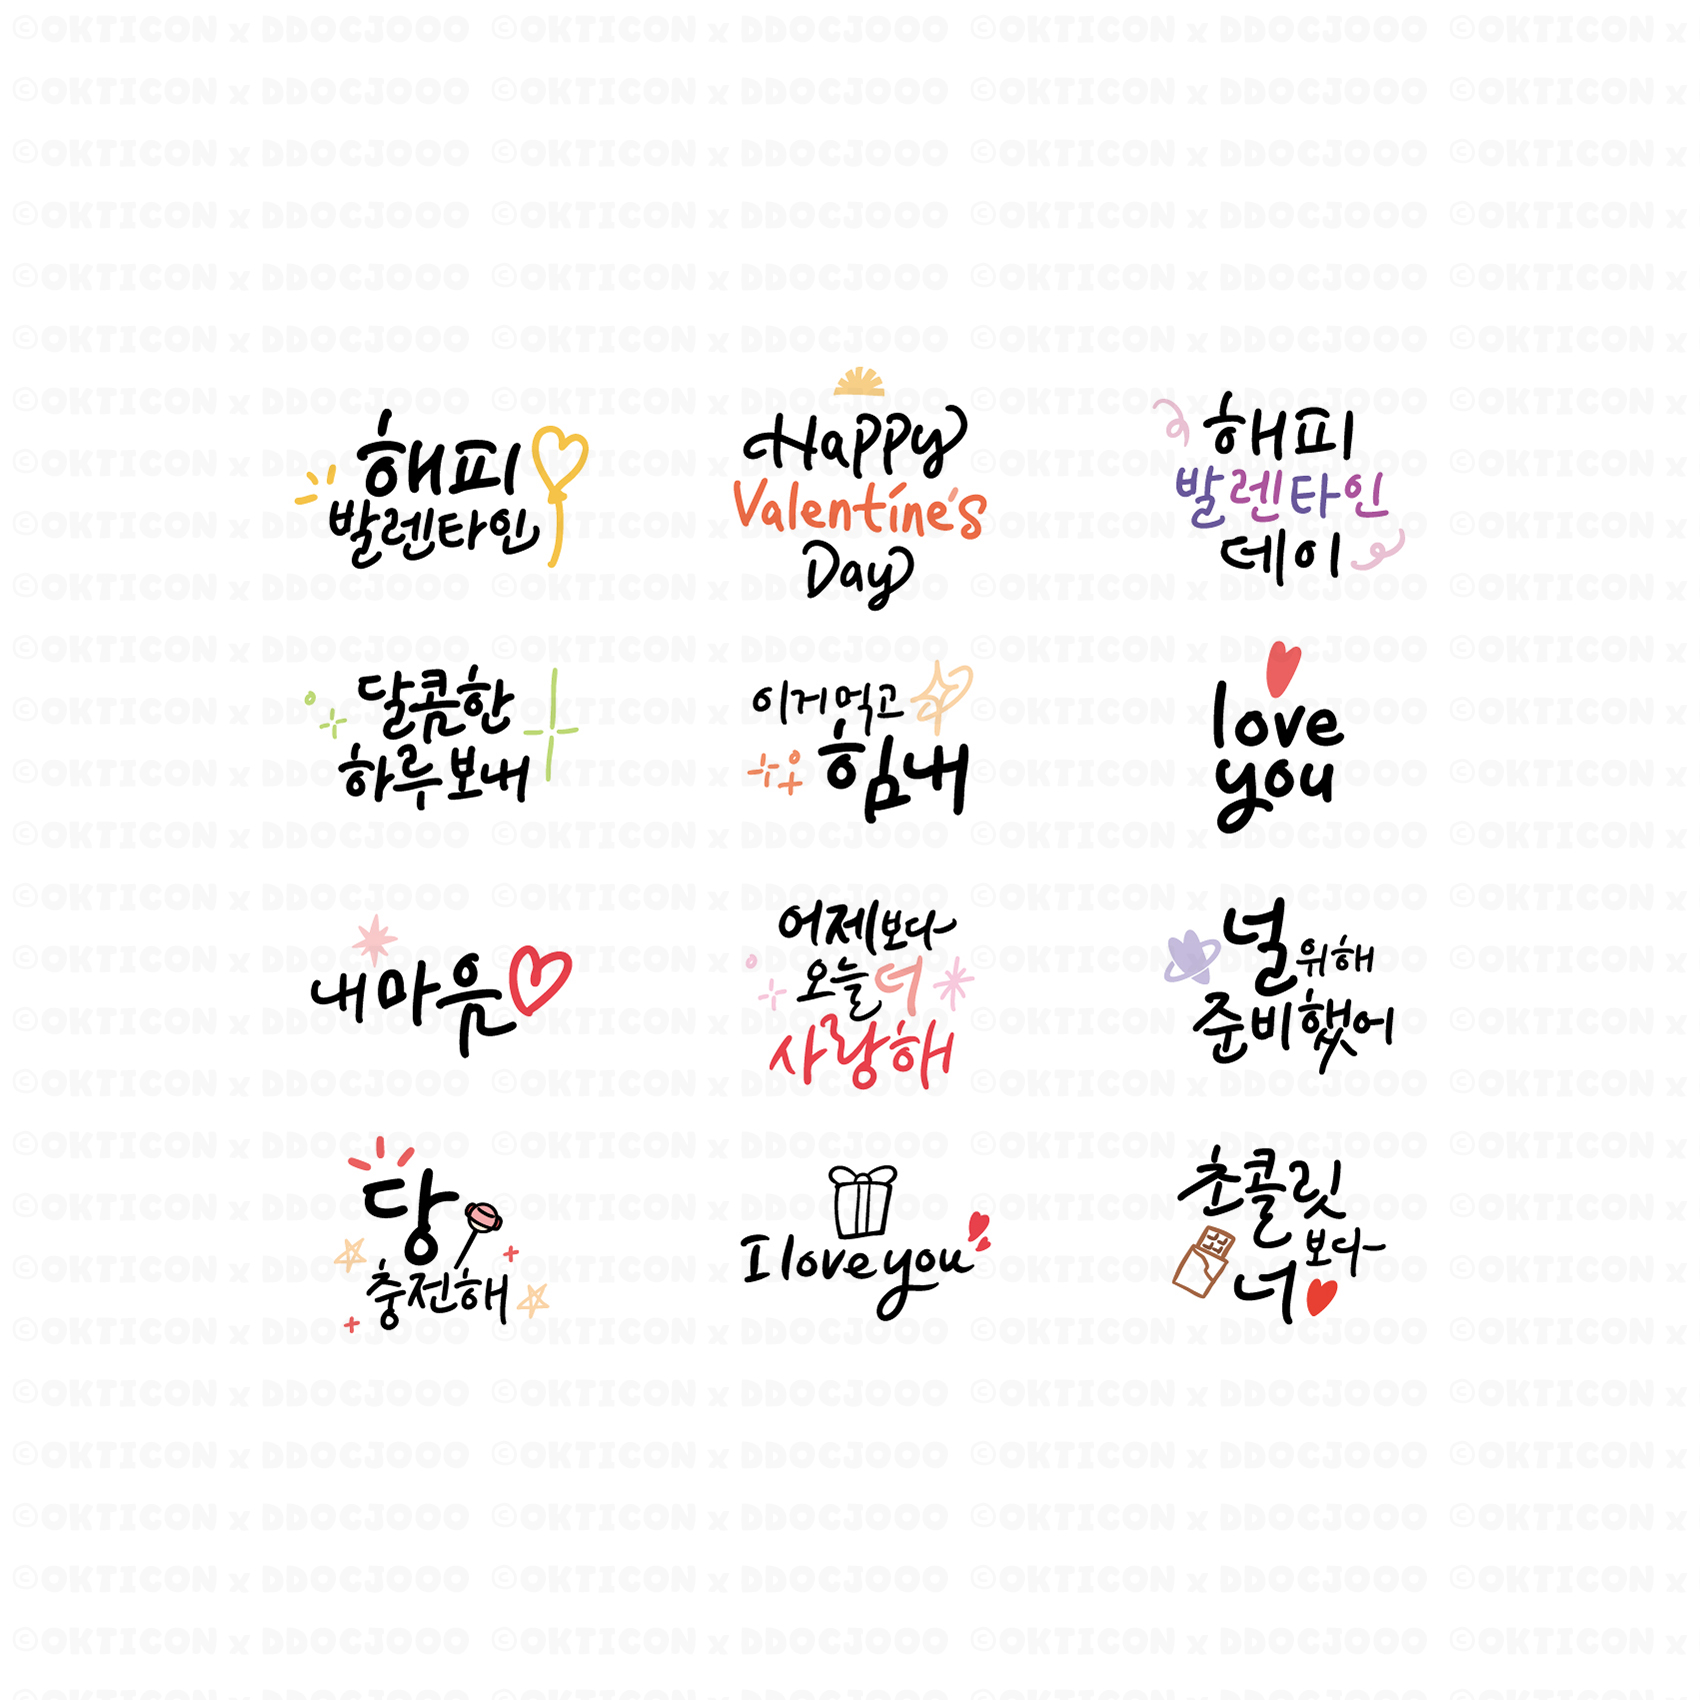 해피
발렌타인
Happy
Valentine's
Day
해피
발렌타인
데이
달콤한
하루보내
이거먹고
힘내
love
you
내마음
어제보다
오늘더
사랑해
널위해
준비했어
당
충전해
I love you
초콜릿
보다
너
©OKTICON x DDOCJOOO ©OKTICON x DDOCJOOO ©OKTICON x DDOCJOOO ©OKTICON x